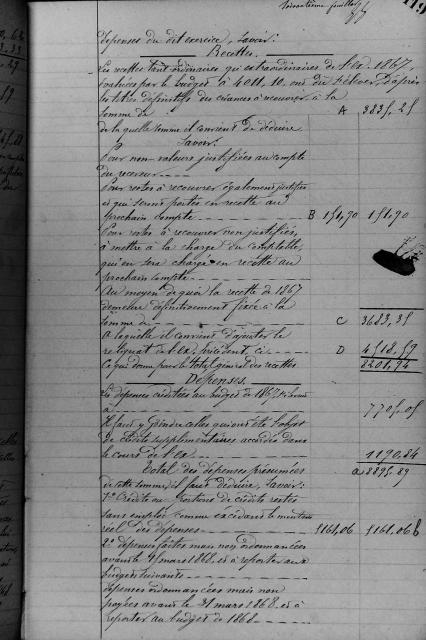 feuillet
119
dépenses du dit exercice, savoir:
Recettes.
Les recettes tant ordinaires qu'extraordinaires de l'ex. 1867
par le budget à 4011,10, ont dû s'élever, d'après
les titres définitifs des créances à recouvrer à la
somme de A 3835,25
de laquelle somme il convient de déduire
Savoir:
Pour non-valeurs justifiées au compte
du receveur
Pour restes à recouvrer également justifiés
et qui seront portés en recette au
prochain compte B 151,90 151,90
Pour restes à recouvrer non justifiés,
à mettre à la charge du comptable,
qui en sera chargé en recette au
prochain compte
Au moyen de quoi la recette de 1867
demeure définitivement fixée à la
somme de C 3683,35
à laquelle il convient d'ajouter le
reliquat de l'ex. précédent, ci D 4518,59
Ce qui donne pour le total général des recettes 8201,94
Dépenses.
Les dépenses créditées au budget de 1867
à 7705,05
Il faut y joindre celles qui ont été l'objet
de crédits supplémentaires accordés dans
le cours de l'ex. 1190,84
Total des dépenses présumées a 8895,89
de cette somme, il faut déduire, savoir:
1° Crédits ou portions de crédits restés
sans emploi comme excédant le montant
réel des dépenses 1161,06 1161,06 b
2° dépenses faites mais non ordonnancées
avant le 31 mars 1868, et à reporter aux
budgets suivants
dépenses ordonnancées mais non
payées avant le 31 mars 1868, et à
reporter au budget de 1868